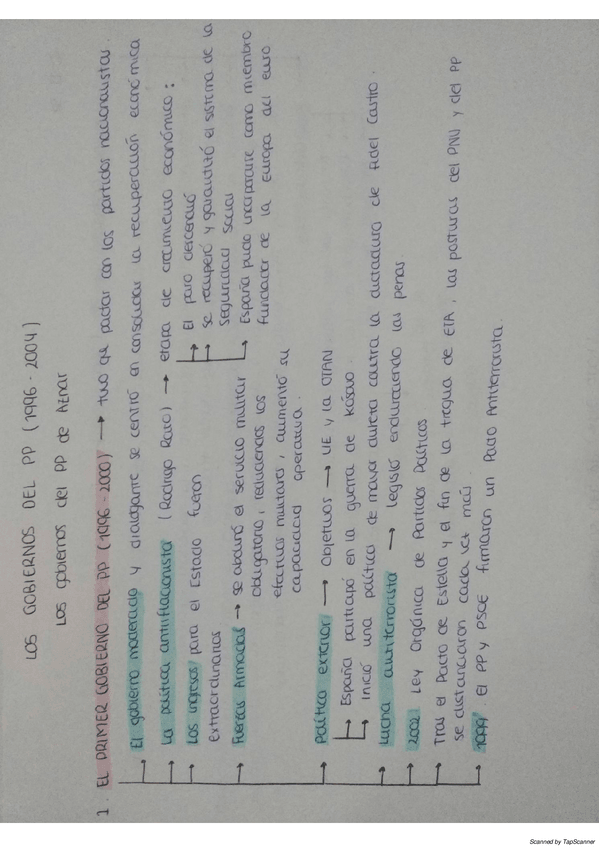 LOS GOBIERNOS DEL PP (1996-2004)
Los gobiernos del PP de Aznar
1. EL PRIMER GOBIERNO DEL PP (1996-2000) → tuvo que pactar con los partidos nacionalistas.
→ El gobierno moderado y dialogante se centró en consolidar la recuperación económica
→ La política antiinflacionista (Rodrigo Rato) → etapa de crecimiento económico:
→ El paro descendió
→ Se recuperó y garantizó el sistema de la
Seguridad Social
→ España pudo incorporarse como miembro
fundador de la Europa del euro
→ Los ingresos para el Estado fueron
extraordinarios
→ Fuerzas Armadas → se abolió el servicio militar
obligatorio, reduciendo los
efectivos militares, aumentó su
capacidad operativa.
→ Política exterior → Objetivos → UE y la OTAN
→ España participó en la guerra de Kósovo
→ Inició una política de mayor dureza contra la dictadura de Fidel Castro.
→ Lucha antiterrorista → legisló endureciendo las penas
→ 2002 Ley Orgánica de Partidos Políticos
→ Tras el Pacto de Estella y el fin de la tregua de ETA, las posturas del PNV y del PP
se distanciaron cada vez más.
→ 1999 El PP y PSOE firmaron un Pacto Antiterrorista.
Scanned by TapScanner